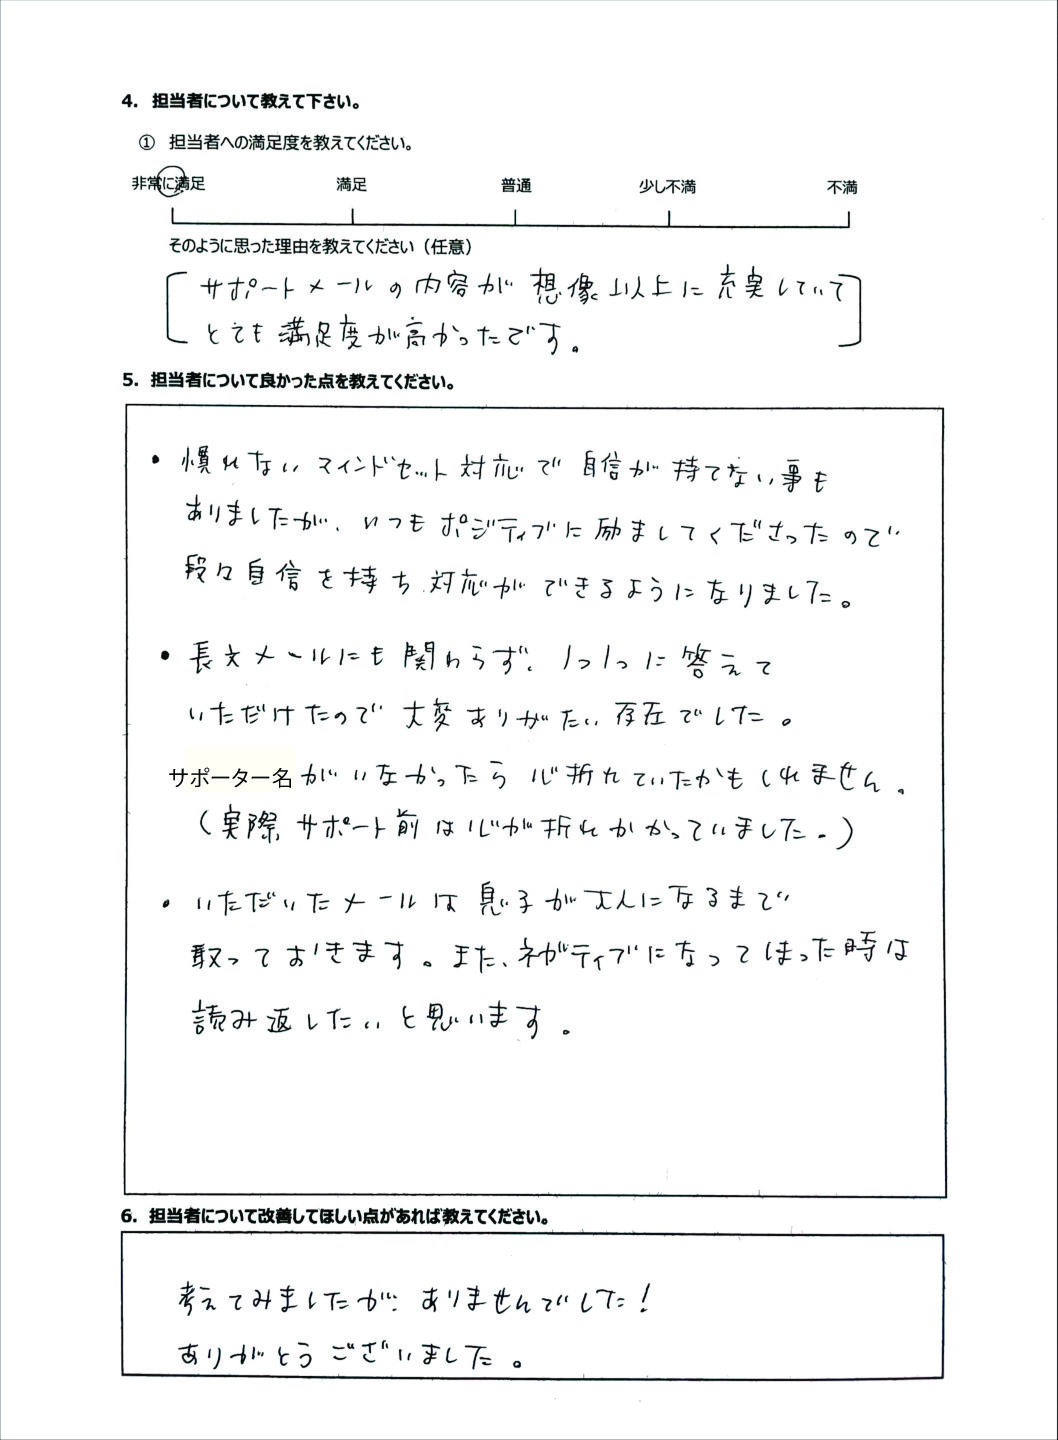 4. 担当者について教えて下さい。
① 担当者への満足度を教えてください。
非常に満足 満足 普通 少し不満 不満
そのように思った理由を教えてください（任意）
サポートメールの内容が想像以上に充実していて
とても満足度が高かったです。
5. 担当者について良かった点を教えてください。
・慣れないマインドセット対応で自信が持てない事も
ありましたが、いつもポジティブに励ましてくださったので
段々自信を持ち対応ができるようになりました。
・長文メールにも関わらず、1つ1つに答えて
いただけたので大変ありがたい存在でした。
サポーター名がいなかったら心折れていたかもしれません。
（実際サポート前は心が折れかかっていました。）
・いただいたメールは息子が大人になるまで
取っておきます。また、ネガティブになってしまった時は
読み返したいと思います。
6. 担当者について改善してほしい点があれば教えてください。
考えてみましたが、ありませんでした!
ありがとうございました。